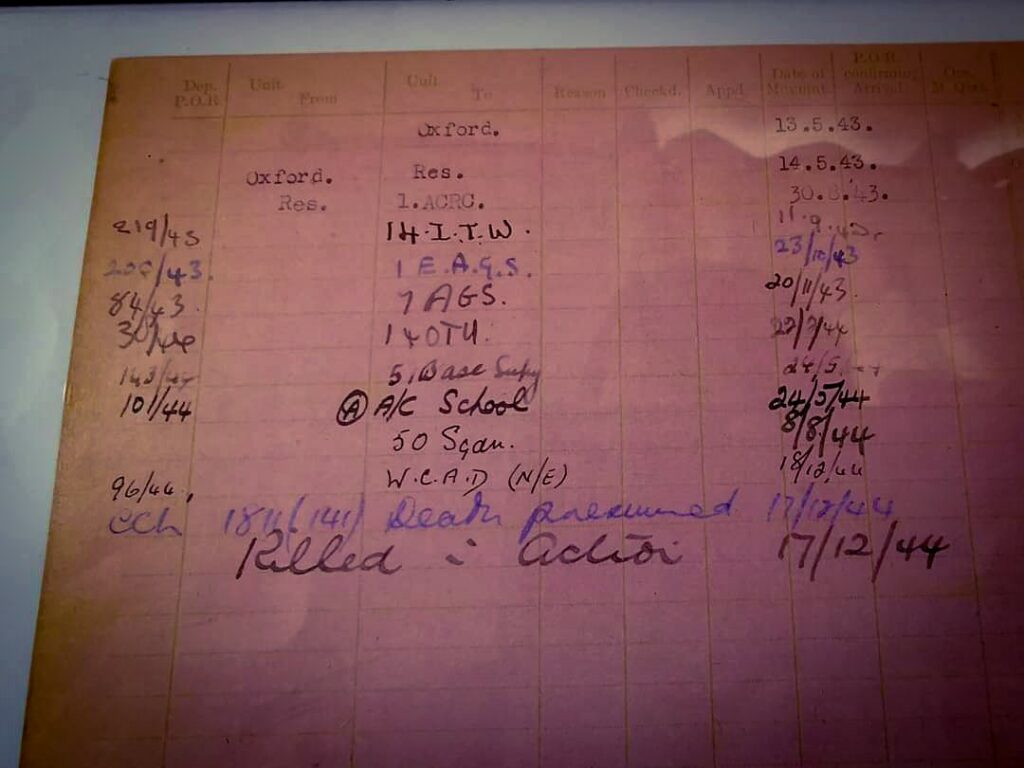 Dep. P.O.R. Unit From Unit To Reason Checkd. Appd. Date of Movemnt. P.O.R. confirming Arrival. Occ.
Oxford. 13.5.43.
Oxford. Res. 14.5.43.
Res. 1.ACRC. 30.8.43.
219/43 14.I.T.W. 11.9.43.
/43. 1 E.A.G.S. 23/10/43
84/43. 7 AGS. 20/11/43
30/44 14 OTU. /44
143/44 5, Base 24/5
101/44 (A) A/C School 24/5/44
50 Sqdn. 8/8/44
96/44. W.C.A.D (N/E) 18/12/44
CCh 1811(141) Death presumed 17/12/44
Killed in Action 17/12/44